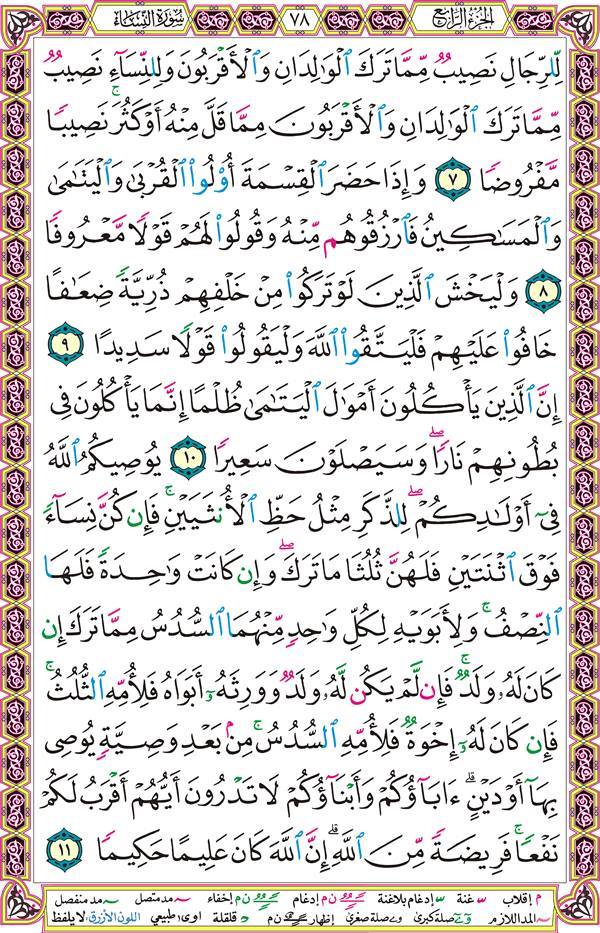 سورة النساء ٧٨ الجزء الرابع
لِّلرِّجَالِ نَصِيبٌ مِّمَّا تَرَكَ ٱلْوَٰلِدَانِ وَٱلْأَقْرَبُونَ وَلِلنِّسَآءِ نَصِيبٌ
مِّمَّا تَرَكَ ٱلْوَٰلِدَانِ وَٱلْأَقْرَبُونَ مِمَّا قَلَّ مِنْهُ أَوْ كَثُرَ ۚ نَصِيبًا
مَّفْرُوضًا ٧ وَإِذَا حَضَرَ ٱلْقِسْمَةَ أُو۟لُوا۟ ٱلْقُرْبَىٰ وَٱلْيَتَٰمَىٰ
وَٱلْمَسَٰكِينُ فَٱرْزُقُوهُم مِّنْهُ وَقُولُوا۟ لَهُمْ قَوْلًا مَّعْرُوفًا
٨ وَلْيَخْشَ ٱلَّذِينَ لَوْ تَرَكُوا۟ مِنْ خَلْفِهِمْ ذُرِّيَّةً ضِعَٰفًا
خَافُوا۟ عَلَيْهِمْ فَلْيَتَّقُوا۟ ٱللَّهَ وَلْيَقُولُوا۟ قَوْلًا سَدِيدًا ٩
إِنَّ ٱلَّذِينَ يَأْكُلُونَ أَمْوَٰلَ ٱلْيَتَٰمَىٰ ظُلْمًا إِنَّمَا يَأْكُلُونَ فِى
بُطُونِهِمْ نَارًا ۖ وَسَيَصْلَوْنَ سَعِيرًا ١٠ يُوصِيكُمُ ٱللَّهُ
فِىٓ أَوْلَٰدِكُمْ ۖ لِلذَّكَرِ مِثْلُ حَظِّ ٱلْأُنثَيَيْنِ ۚ فَإِن كُنَّ نِسَآءً
فَوْقَ ٱثْنَتَيْنِ فَلَهُنَّ ثُلُثَا مَا تَرَكَ ۖ وَإِن كَانَتْ وَٰحِدَةً فَلَهَا
ٱلنِّصْفُ ۚ وَلِأَبَوَيْهِ لِكُلِّ وَٰحِدٍ مِّنْهُمَا ٱلسُّدُسُ مِمَّا تَرَكَ إِن
كَانَ لَهُۥ وَلَدٌ ۚ فَإِن لَّمْ يَكُن لَّهُۥ وَلَدٌ وَوَرِثَهُۥٓ أَبَوَاهُ فَلِأُمِّهِ ٱلثُّلُثُ ۚ
فَإِن كَانَ لَهُۥٓ إِخْوَةٌ فَلِأُمِّهِ ٱلسُّدُسُ ۚ مِنۢ بَعْدِ وَصِيَّةٍ يُوصِى
بِهَآ أَوْ دَيْنٍ ۗ ءَابَآؤُكُمْ وَأَبْنَآؤُكُمْ لَا تَدْرُونَ أَيُّهُمْ أَقْرَبُ لَكُمْ
نَفْعًا ۚ فَرِيضَةً مِّنَ ٱللَّهِ ۗ إِنَّ ٱللَّهَ كَانَ عَلِيمًا حَكِيمًا ١١
م إقلاب غنة إدغام بلاغنة ن م إدغام إخفاء مد متصل مد منفصل
مد اللازم صلة كبرى صلة صغرى إظهار ن م قلقلة اوى طبيعي اللون الأزرق: لا يلفظ